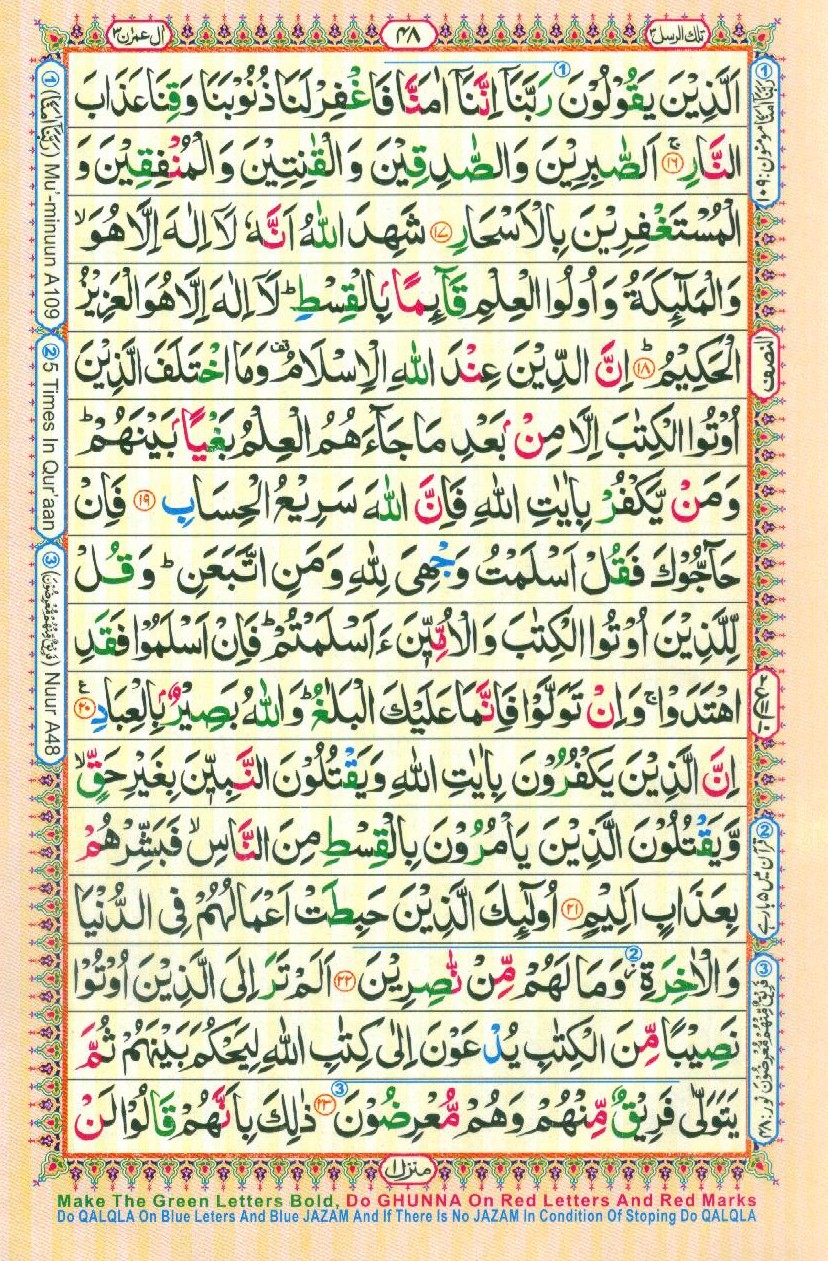 تلك الرسل ٣
٤٨
ال عمرٰن ٣
اَلَّذِيْنَ يَقُوْلُوْنَ رَبَّنَاۤ اِنَّنَاۤ اٰمَنَّا فَاغْفِرْ لَنَا ذُنُوْبَنَا وَقِنَا عَذَابَ
النَّارِۚ ١٦ اَلصّٰبِرِيْنَ وَالصّٰدِقِيْنَ وَالْقٰنِتِيْنَ وَالْمُنْفِقِيْنَ وَ
الْمُسْتَغْفِرِيْنَ بِالْاَسْحَارِ ١٧ شَهِدَ اللّٰهُ اَنَّهٗ لَاۤ اِلٰهَ اِلَّا هُوَۙ
وَالْمَلٰٓئِكَةُ وَاُولُوا الْعِلْمِ قَآئِمًاۢ بِالْقِسْطِؕ لَاۤ اِلٰهَ اِلَّا هُوَ الْعَزِيْزُ
الْحَكِيْمُؕ ١٨ اِنَّ الدِّيْنَ عِنْدَ اللّٰهِ الْاِسْلَامُ قف وَمَا اخْتَلَفَ الَّذِيْنَ
اُوْتُوا الْكِتٰبَ اِلَّا مِنْۢ بَعْدِ مَا جَآءَهُمُ الْعِلْمُ بَغْيًاۢ بَيْنَهُمْؕ
وَمَنْ يَّكْفُرْ بِاٰيٰتِ اللّٰهِ فَاِنَّ اللّٰهَ سَرِيْعُ الْحِسَابِ ١٩ فَاِنْ
حَآجُّوْكَ فَقُلْ اَسْلَمْتُ وَجْهِيَ لِلّٰهِ وَمَنِ اتَّبَعَنِؕ وَقُلْ
لِّلَّذِيْنَ اُوْتُوا الْكِتٰبَ وَالْاُمِّيّٖنَ ءَاَسْلَمْتُمْؕ فَاِنْ اَسْلَمُوْا فَقَدِ
اهْتَدَوْاۚ وَاِنْ تَوَلَّوْا فَاِنَّمَا عَلَيْكَ الْبَلٰغُؕ وَاللّٰهُ بَصِيْرٌۢ بِالْعِبَادِ ٢٠ ع
اِنَّ الَّذِيْنَ يَكْفُرُوْنَ بِاٰيٰتِ اللّٰهِ وَيَقْتُلُوْنَ النَّبِيّٖنَ بِغَيْرِ حَقٍّۙ
وَّيَقْتُلُوْنَ الَّذِيْنَ يَاْمُرُوْنَ بِالْقِسْطِ مِنَ النَّاسِۙ فَبَشِّرْهُمْ
بِعَذَابٍ اَلِيْمٍ ٢١ اُولٰٓئِكَ الَّذِيْنَ حَبِطَتْ اَعْمَالُهُمْ فِى الدُّنْيَا
وَالْاٰخِرَةِ وَمَا لَهُمْ مِّنْ نّٰصِرِيْنَ ٢٢ اَلَمْ تَرَ اِلَى الَّذِيْنَ اُوْتُوْا
نَصِيْبًا مِّنَ الْكِتٰبِ يُدْعَوْنَ اِلٰى كِتٰبِ اللّٰهِ لِيَحْكُمَ بَيْنَهُمْ ثُمَّ
يَتَوَلّٰى فَرِيْقٌ مِّنْهُمْ وَهُمْ مُّعْرِضُوْنَ ٢٣ ذٰلِكَ بِاَنَّهُمْ قَالُوْا لَنْ
① رَبَّنَاۤ اٰمَنَّا مومنون: ١٠٩
النصف
② قرآن میں ۵ بار ہے
③ فَرِيْقٌ مِّنْهُمْ مُّعْرِضُوْنَ نور: ٤٨
① (رَبَّنَاۤ اٰمَنَّا) Mu'-minuun A109
② 5 Times In Qur'aan
③ (فَرِيْقٌ مِّنْهُمْ مُّعْرِضُوْنَ) Nuur A48
منزل ١
Make The Green Letters Bold, Do GHUNNA On Red Letters And Red Marks
Do QALQLA On Blue Leters And Blue JAZAM And If There Is No JAZAM In Condition Of Stoping Do QALQLA